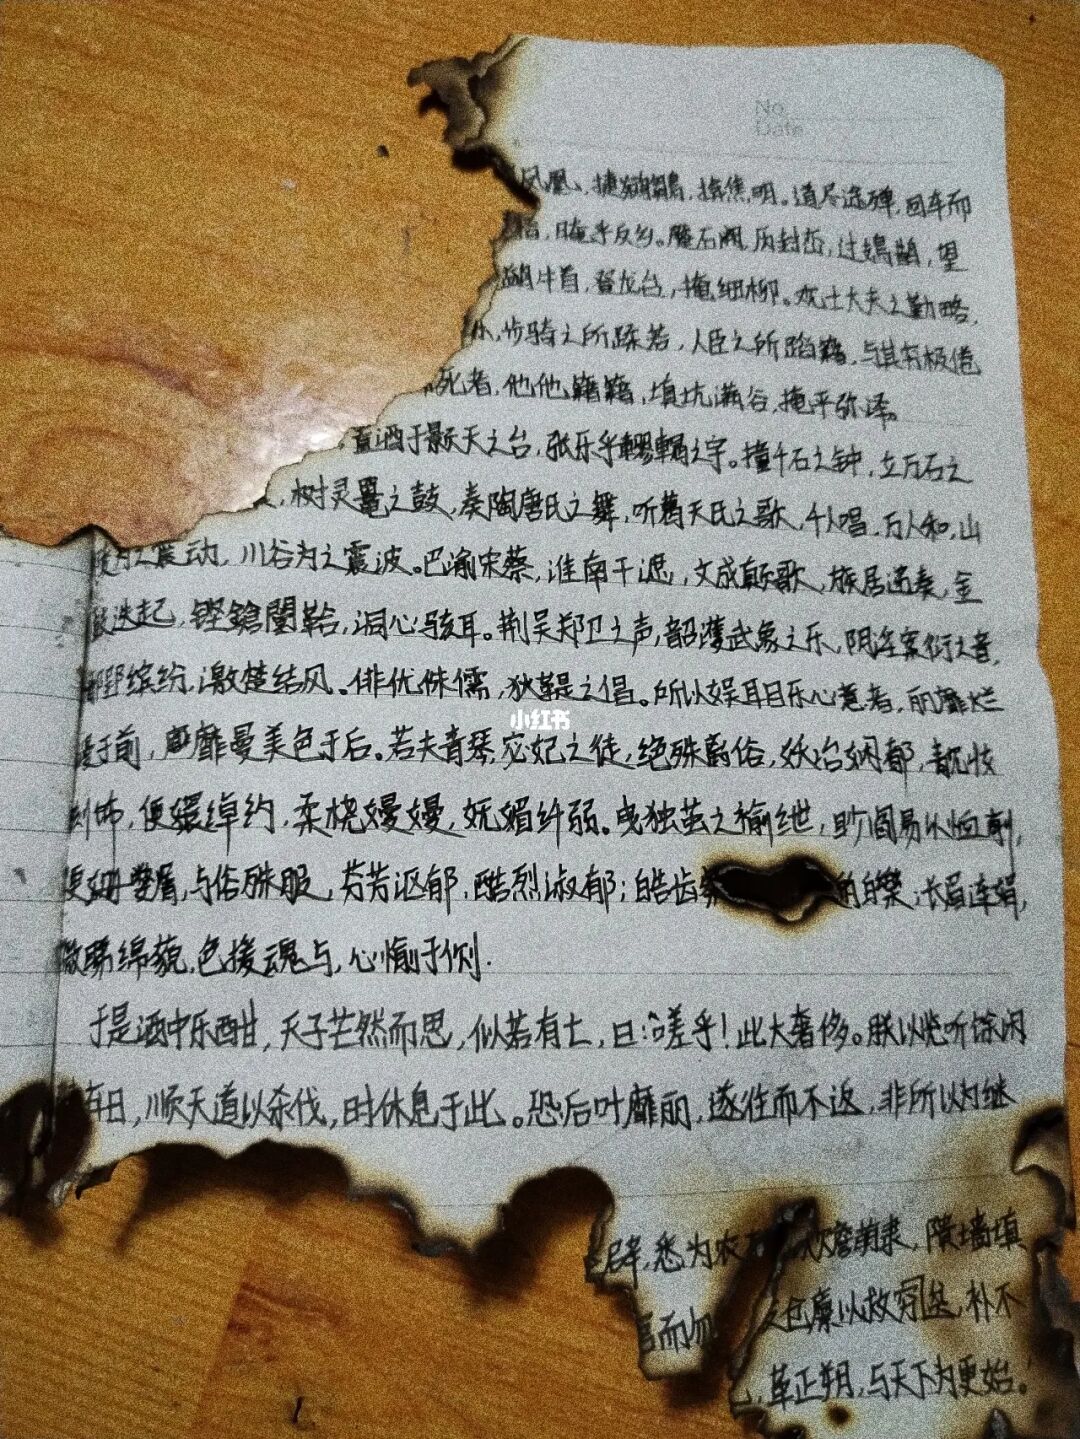 No.
Date
凤凰、捷鹓鶵，揜焦明。道尽途殚，回车而
，晻乎反乡。蹷石阙，历封峦，过鳷鹊，望
牛首，登龙台，掩细柳。观士大夫之勤略，
步骑之所蹂若，人臣之所蹈籍，与其穷极倦
死者，他他籍籍，填坑满谷，掩平弥泽。
置酒于颢天之台，张乐乎轇輵之宇。撞千石之钟，立万石之
，树灵鼍之鼓，奏陶唐氏之舞，听葛天氏之歌，千人唱，万人和，山
为之震动，川谷为之震波。巴渝宋蔡，淮南干遮，文成颠歌，族居递奏，金
迭起，铿鎗闛鞈，洞心骇耳。荆吴郑卫之声，韶濩武象之乐，阴淫案衍之音，
缤纷，激楚结风。俳优侏儒，狄鞮之倡。所以娱耳目乐心意者，丽靡烂
于前，靡曼美色于后。若夫青琴，宓妃之徒，绝殊离俗，妖冶娴都，靓妆
刻饰，便嬛绰约，柔桡嫚嫚，妩媚纤弱。曳独茧之褕绁，眇阎易以恤削，
便姗，与俗殊服，芬芳沤郁，酷烈淑郁；皓齿 的皪，长眉连娟，
微睇绵藐，色授魂与，心愉于侧.
于是酒中乐酣，天子芒然而思，似若有亡，曰：“嗟乎！此大奢侈。朕以览听馀闲
弃日，顺天道以杀伐，时休息于此。恐后叶靡丽，遂往而不返，非所以为继
辟，悉为农 以赡萌隶，隤墙填
而勿 仓廪以救穷 补不
，革正朔，与天下为更始！
小红书